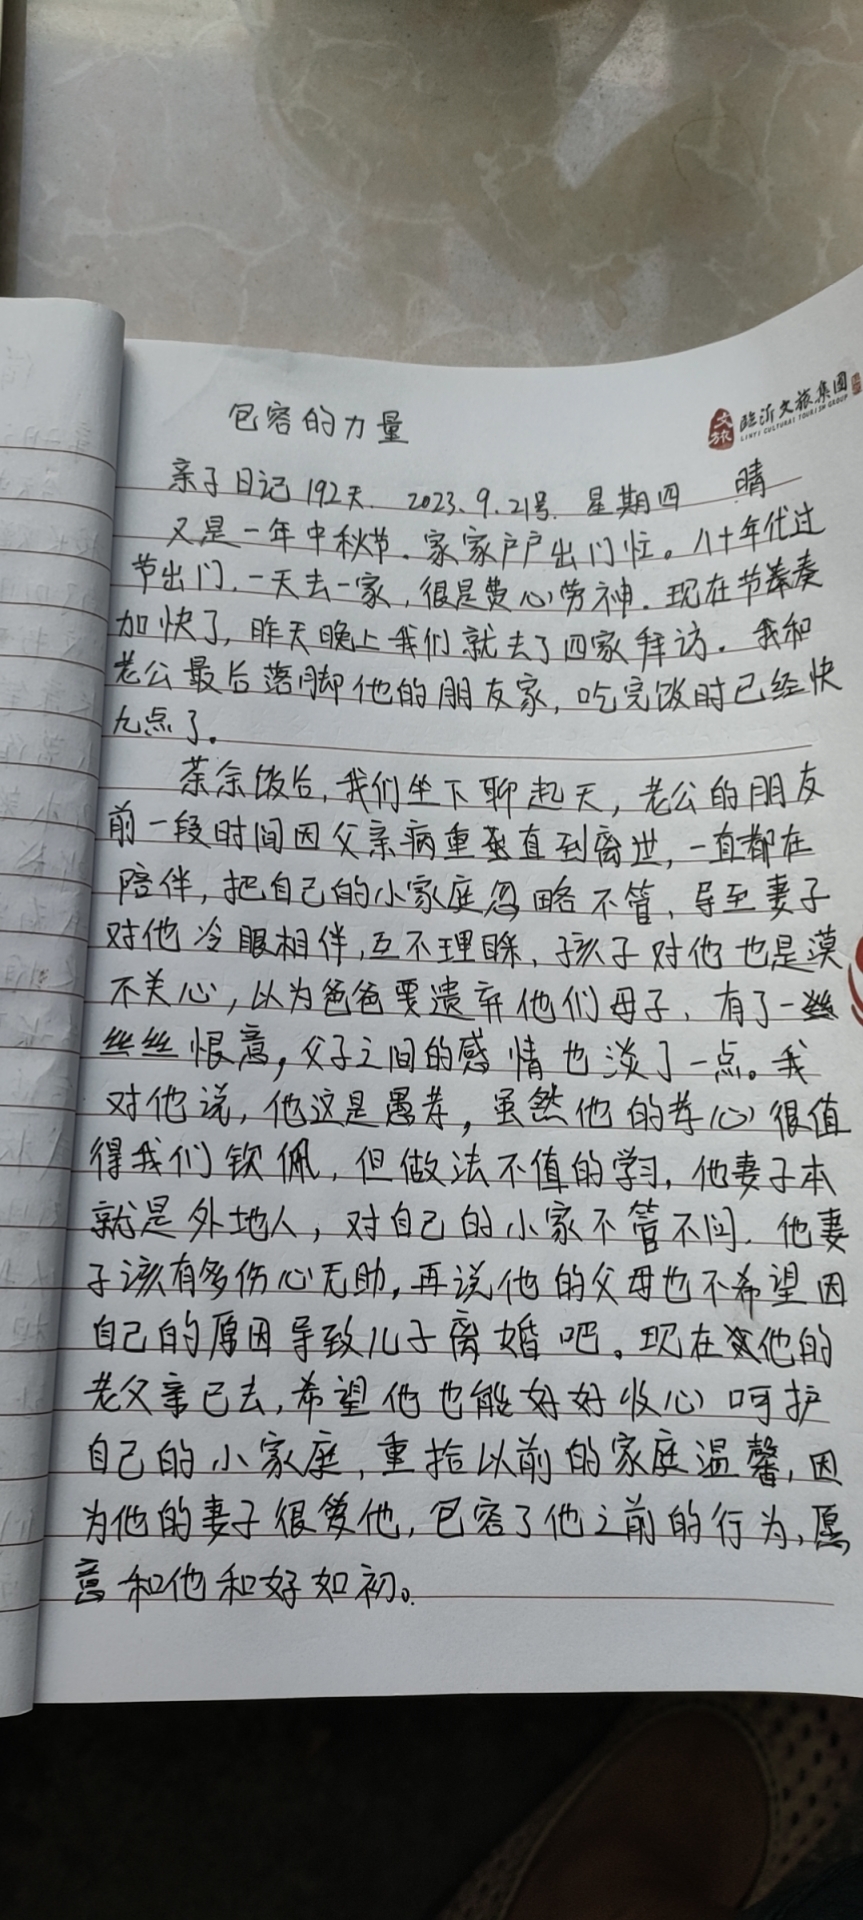 包容的力量
文旅 临沂文旅集团
LINYI CULTURAL TOURISM GROUP
亲子日记192天. 2023.9.21号. 星期四 晴
又是一年中秋节.家家户户出门忙。八十年代过
节出门.一天去一家,很是费心劳神.现在节奏
加快了,昨天晚上我们就去了四家拜访.我和
老公最后落脚他的朋友家,吃完饭时已经快
九点了.
茶余饭后,我们坐下聊起天,老公的朋友
前一段时间因父亲病重直到离世,一直都在
陪伴,把自己的小家庭忽略不管,导至妻子
对他冷眼相伴,互不理睬,孩子对他也是漠
不关心,以为爸爸要遗弃他们母子,有了一
丝丝恨意,父子之间的感情也淡了一点。我
对他说,他这是愚孝,虽然他的孝心很值
得我们钦佩,但做法不值的学习,他妻子本
就是外地人,对自己的小家不管不问.他妻
子该有多伤心无助,再说他的父母也不希望因
自己的原因导致儿子离婚吧。现在他的
老父亲已去,希望他也能好好收心呵护
自己的小家庭,重拾以前的家庭温馨,因
为他的妻子很爱他,包容了他之前的行为,愿
意和他和好如初。